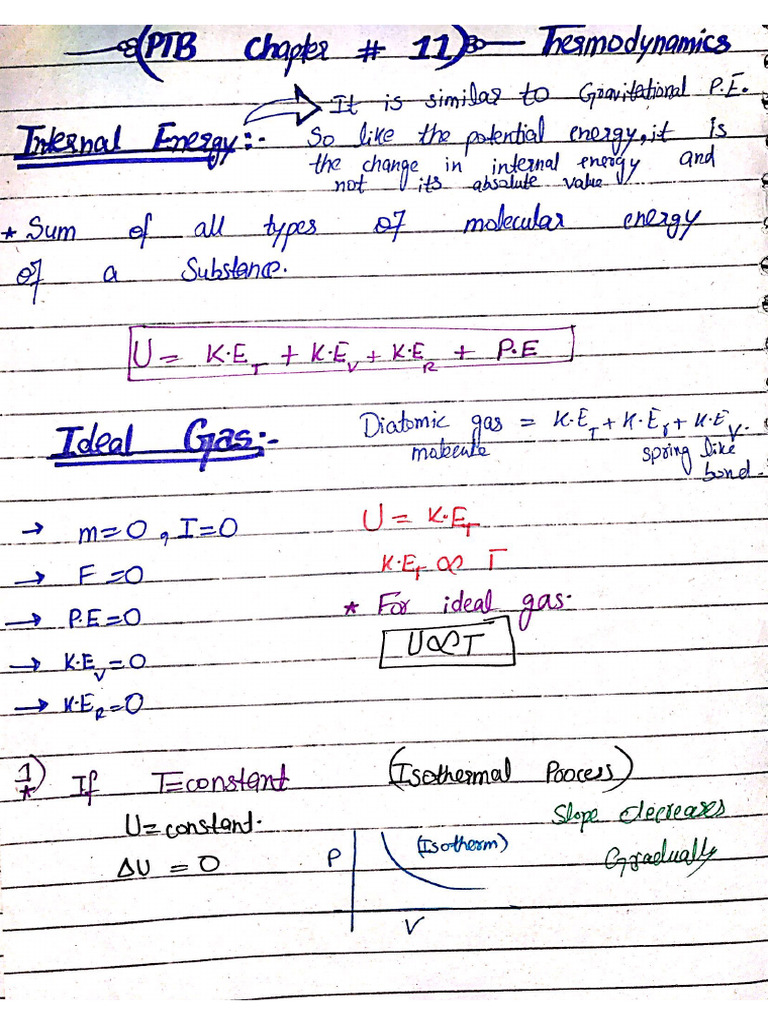 (PTB Chapter # 11) Thermodynamics
It is similar to Gravitational P.E.
Internal Energy:- So like the potential energy, it is
the change in internal energy and
not its absolute value
* Sum of all types of molecular energy
of a Substance.
U = K.E_T + K.E_V + K.E_R + P.E
Ideal Gas:- Diatomic gas = K.E_T + K.E_r + K.E_V.
molecule spring like
bond.
→ m=0, I=0 U = K.E_T
→ F=0 K.E_T ∝ T
→ P.E=0 * For ideal gas.
→ K.E_V=0 U∝T
→ K.E_R=0
1) * If T=constant (Isothermal Process)
U=constant. Slope decreases
ΔU = 0 P (Isotherm) Gradually
V